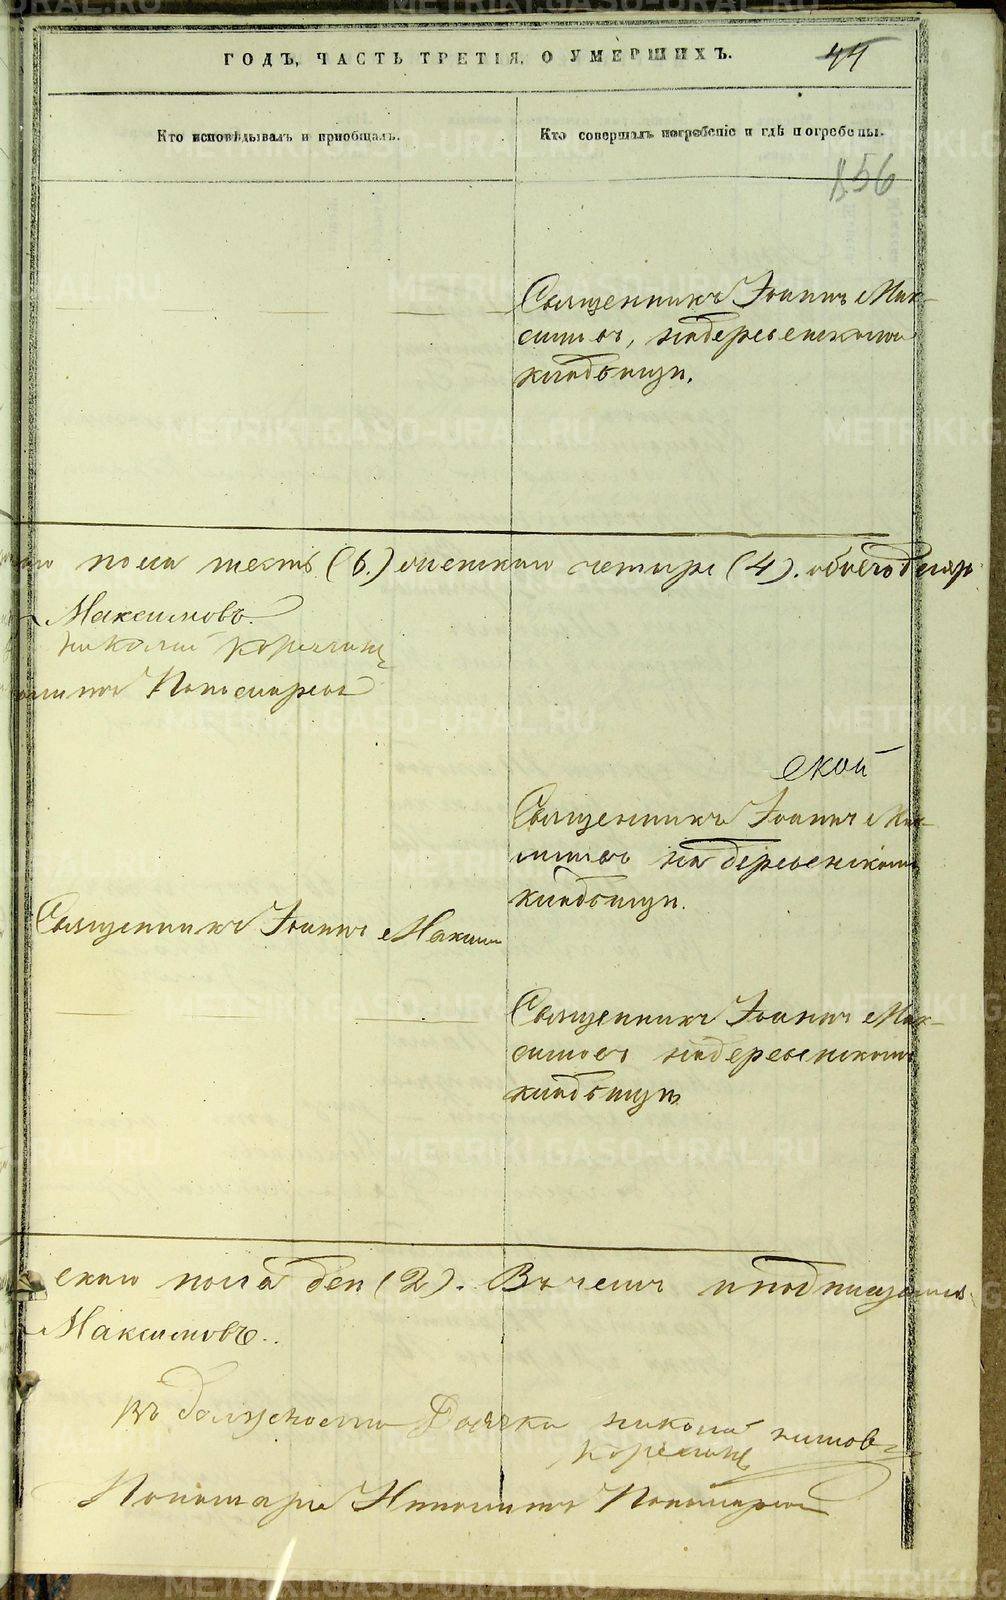 ГОДЪ, ЧАСТЬ ТРЕТІЯ, О УМЕРШИХЪ.
44
Кто исповѣдывалъ и пріобщалъ.
Кто совершалъ погребеніе и гдѣ погребены.
856
Священникъ Іоаннъ Мак-
симовъ, на деревенскомъ
кладбищѣ.
пола шесть (6.) женскаго четыре (4). обоего
Максимовъ.
Николай Корелинъ
Пономаревъ
ской
Священникъ Іоаннъ Мак-
симовъ на деревенскомъ
кладбищѣ.
Священникъ Іоаннъ Максим
Священникъ Іоаннъ Мак-
симовъ на деревенскомъ
кладбищѣ
скаго пола два (2). Въ чемъ и подписуемся
Максимовъ.
Въ должности Дьячка Николай
Корелинъ
Пономарь Пономаревъ
METRIKI.GASO-URAL.RU